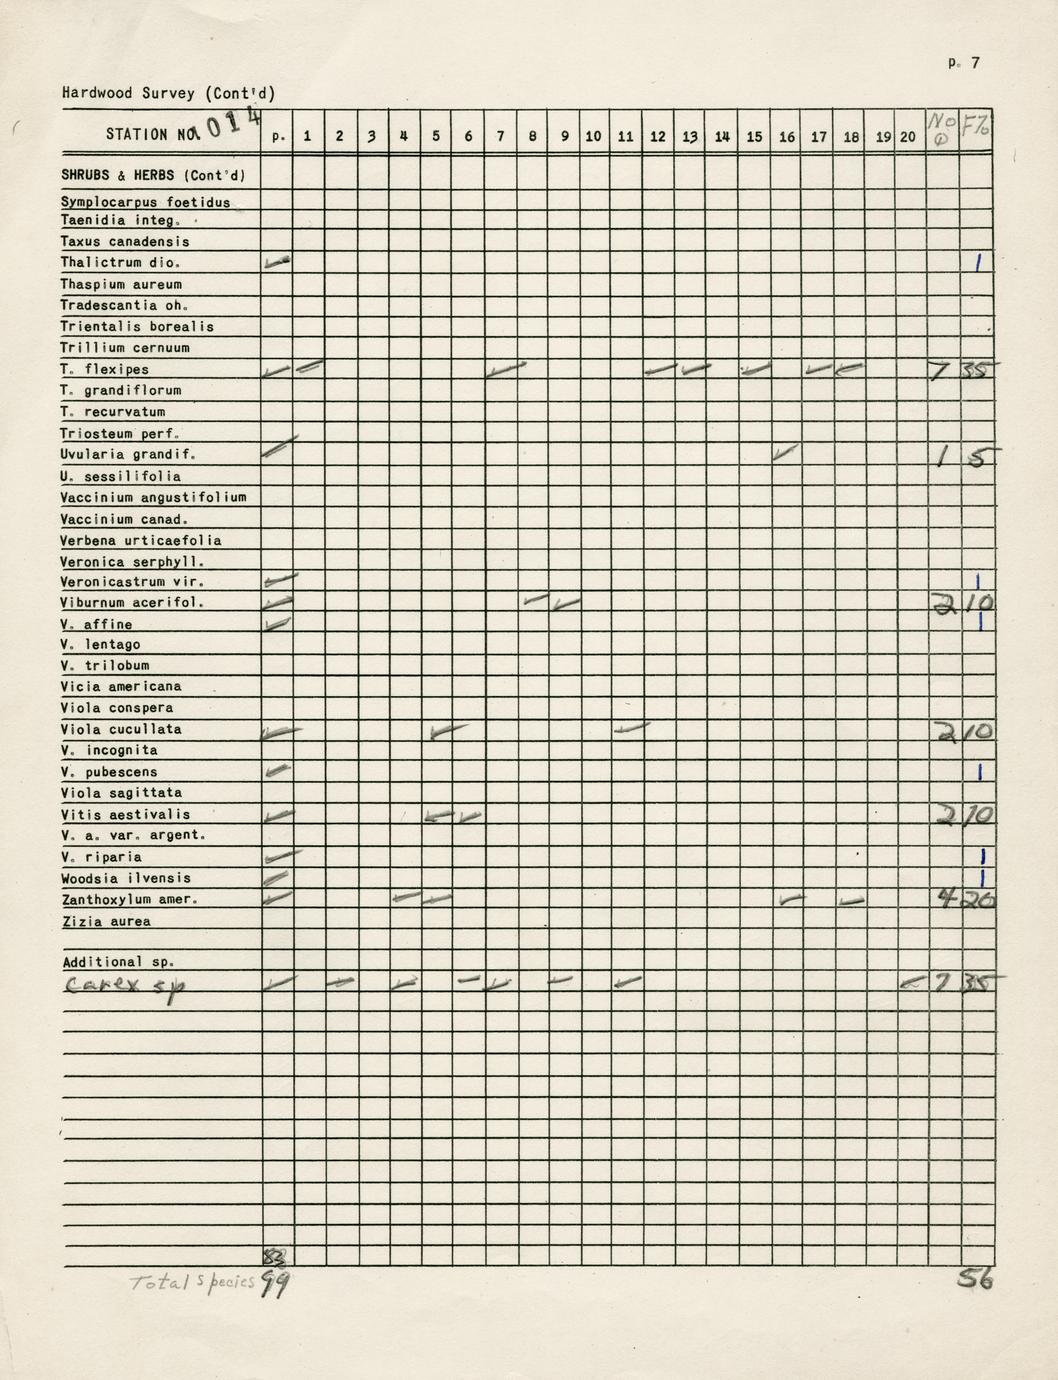 p. 7
Hardwood Survey (Cont'd)
STATION NO. 1014 p. 1 2 3 4 5 6 7 8 9 10 11 12 13 14 15 16 17 18 19 20 No F%
SHRUBS & HERBS (Cont'd)
Symplocarpus foetidus
Taenidia integ.
Taxus canadensis
Thalictrum dio. ✓ 1
Thaspium aureum
Tradescantia oh.
Trientalis borealis
Trillium cernuum
T. flexipes ✓ ✓ ✓ ✓ ✓ ✓ ✓ ✓ 7 35
T. grandiflorum
T. recurvatum
Triosteum perf.
Uvularia grandif. ✓ ✓ 1 5
U. sessilifolia
Vaccinium angustifolium
Vaccinium canad.
Verbena urticaefolia
Veronica serphyll.
Veronicastrum vir. ✓ 1
Viburnum acerifol. ✓ ✓ ✓ 2 10
V. affine ✓ 1
V. lentago
V. trilobum
Vicia americana
Viola conspera
Viola cucullata ✓ ✓ ✓ 2 10
V. incognita
V. pubescens ✓ 1
Viola sagittata
Vitis aestivalis ✓ ✓ ✓ 2 10
V. a. var. argent.
V. riparia ✓ 1
Woodsia ilvensis ✓ 1
Zanthoxylum amer. ✓ ✓ ✓ ✓ ✓ 4 20
Zizia aurea
Additional sp.
Carex sp ✓ ✓ ✓ ✓ ✓ ✓ ✓ ✓ 7 35
Total species 99 56